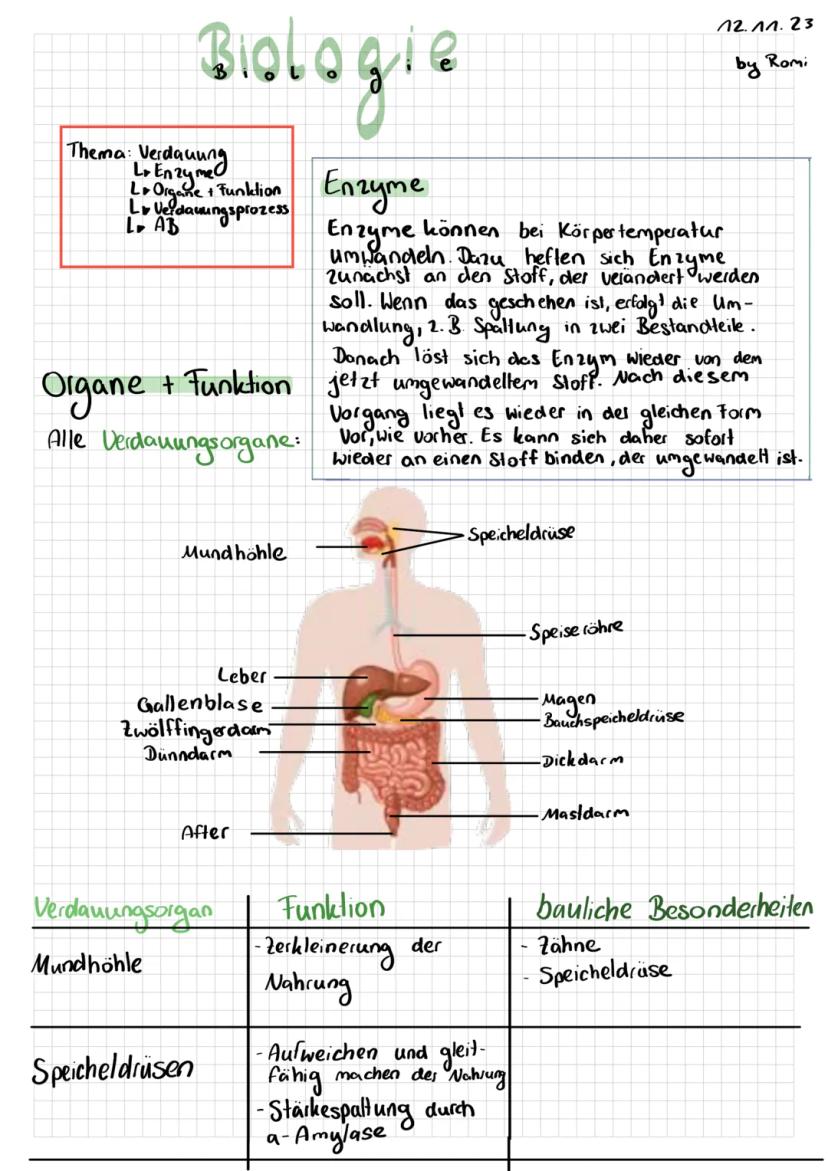 Biologie
Biologie
12.11.23
by Romi
Thema: Verdauung
↳ Enzyme
↳ Organe + Funktion
↳ Verdauungsprozess
↳ AB
Enzyme
Enzyme können bei Körpertemperatur
umwandeln. Dazu heften sich Enzyme
zunächst an den Stoff, der verändert werden
soll. Wenn das geschehen ist, erfolgt die Um-
wandlung, z.B. Spaltung in zwei Bestandteile.
Danach löst sich das Enzym wieder von dem
jetzt umgewandeltem Stoff. Nach diesem
Vorgang liegt es wieder in der gleichen Form
vor, wie vorher. Es kann sich daher sofort
wieder an einen Stoff binden, der umgewandelt ist.
Organe + Funktion
Alle Verdauungsorgane:
Mundhöhle
Speicheldrüse
Speiseröhre
Leber
Gallenblase
Zwölffingerdarm
Dünndarm
Magen
Bauchspeicheldrüse
Dickdarm
Mastdarm
After
Verdauungsorgan Funktion bauliche Besonderheiten
Mundhöhle
- Zerkleinerung der
Nahrung
- Zähne
- Speicheldrüse
Speicheldrüsen
- Aufweichen und gleit-
fähig machen der Nahrung
- Stärkespaltung durch
a-Amylase